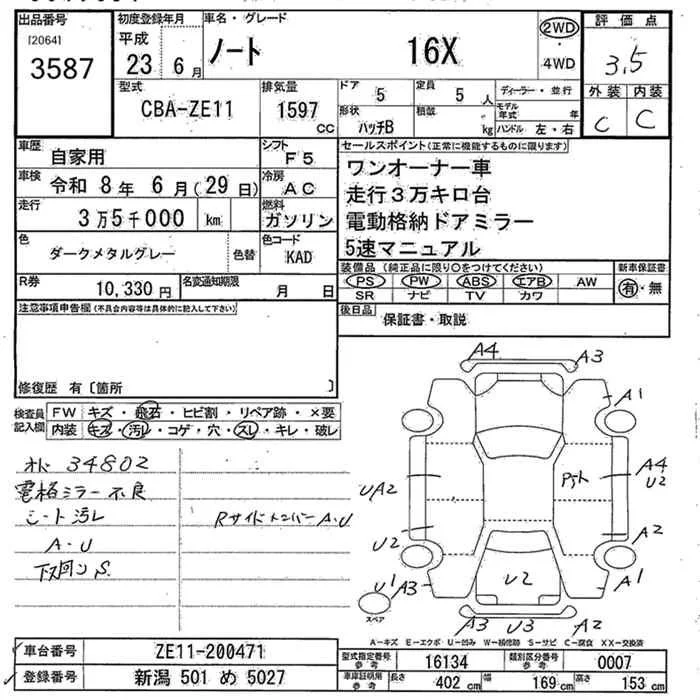 出品番号 初度登録年月 車名・グレード 2WD 評価点
[2064] 平成 ノート 16X ・ 3.5
3587 23 6月 4WD
型式 排気量 ドア 5 定員 5人 ディーラー・並行 外装 内装
CBA-ZE11 1597cc 形状 ハッチB 積載 kg モデル年式 年 C C
ハンドル 左・右
車歴 自家用 シフト F5 セールスポイント(正常に機能するものに限ります)
車検 令和 8年 6月(29日) 冷房 AC ワンオーナー車
走行 3万5千000 km 燃料 ガソリン 走行3万キロ台
色 ダークメタルグレー 色替 色コード KAD 電動格納ドアミラー
5速マニュアル
R券 10,330円 名変通知期限 月 日 装備品(純正品に限り○をつけてください) 新車保証書
PS PW ABS エアB AW 有・無
SR ナビ TV カワ
注意事項申告欄(不具合内容等は具体的に記入して下さい) 後日品 保証書・取説
修復歴 有〔箇所 〕
検査員記入欄 FW キズ・飛石・ヒビ割・リペア跡・×要
内装 キズ・汚れ・コゲ・穴・スレ・キレ・破レ
オド 34802
電格ミラー不良
シート汚れ Rサイドメンバー A・U
A・U
下廻り S
A4 A3
A1
UA2 P跡 A4
U2
U2 A2
U1 A3 U2 A1
スペア A3 U3 A2
A-キズ E-エクボ U-凹み W-補修跡 S-サビ C-腐食 XX-交換済
車台番号 ZE11-200471 型式指定番号 参考 16134 類別区分番号 参考 0007
登録番号 新潟 501 め 5027 車庫証明用 参考 長さ 402 cm 幅 169 cm 高さ 153 cm